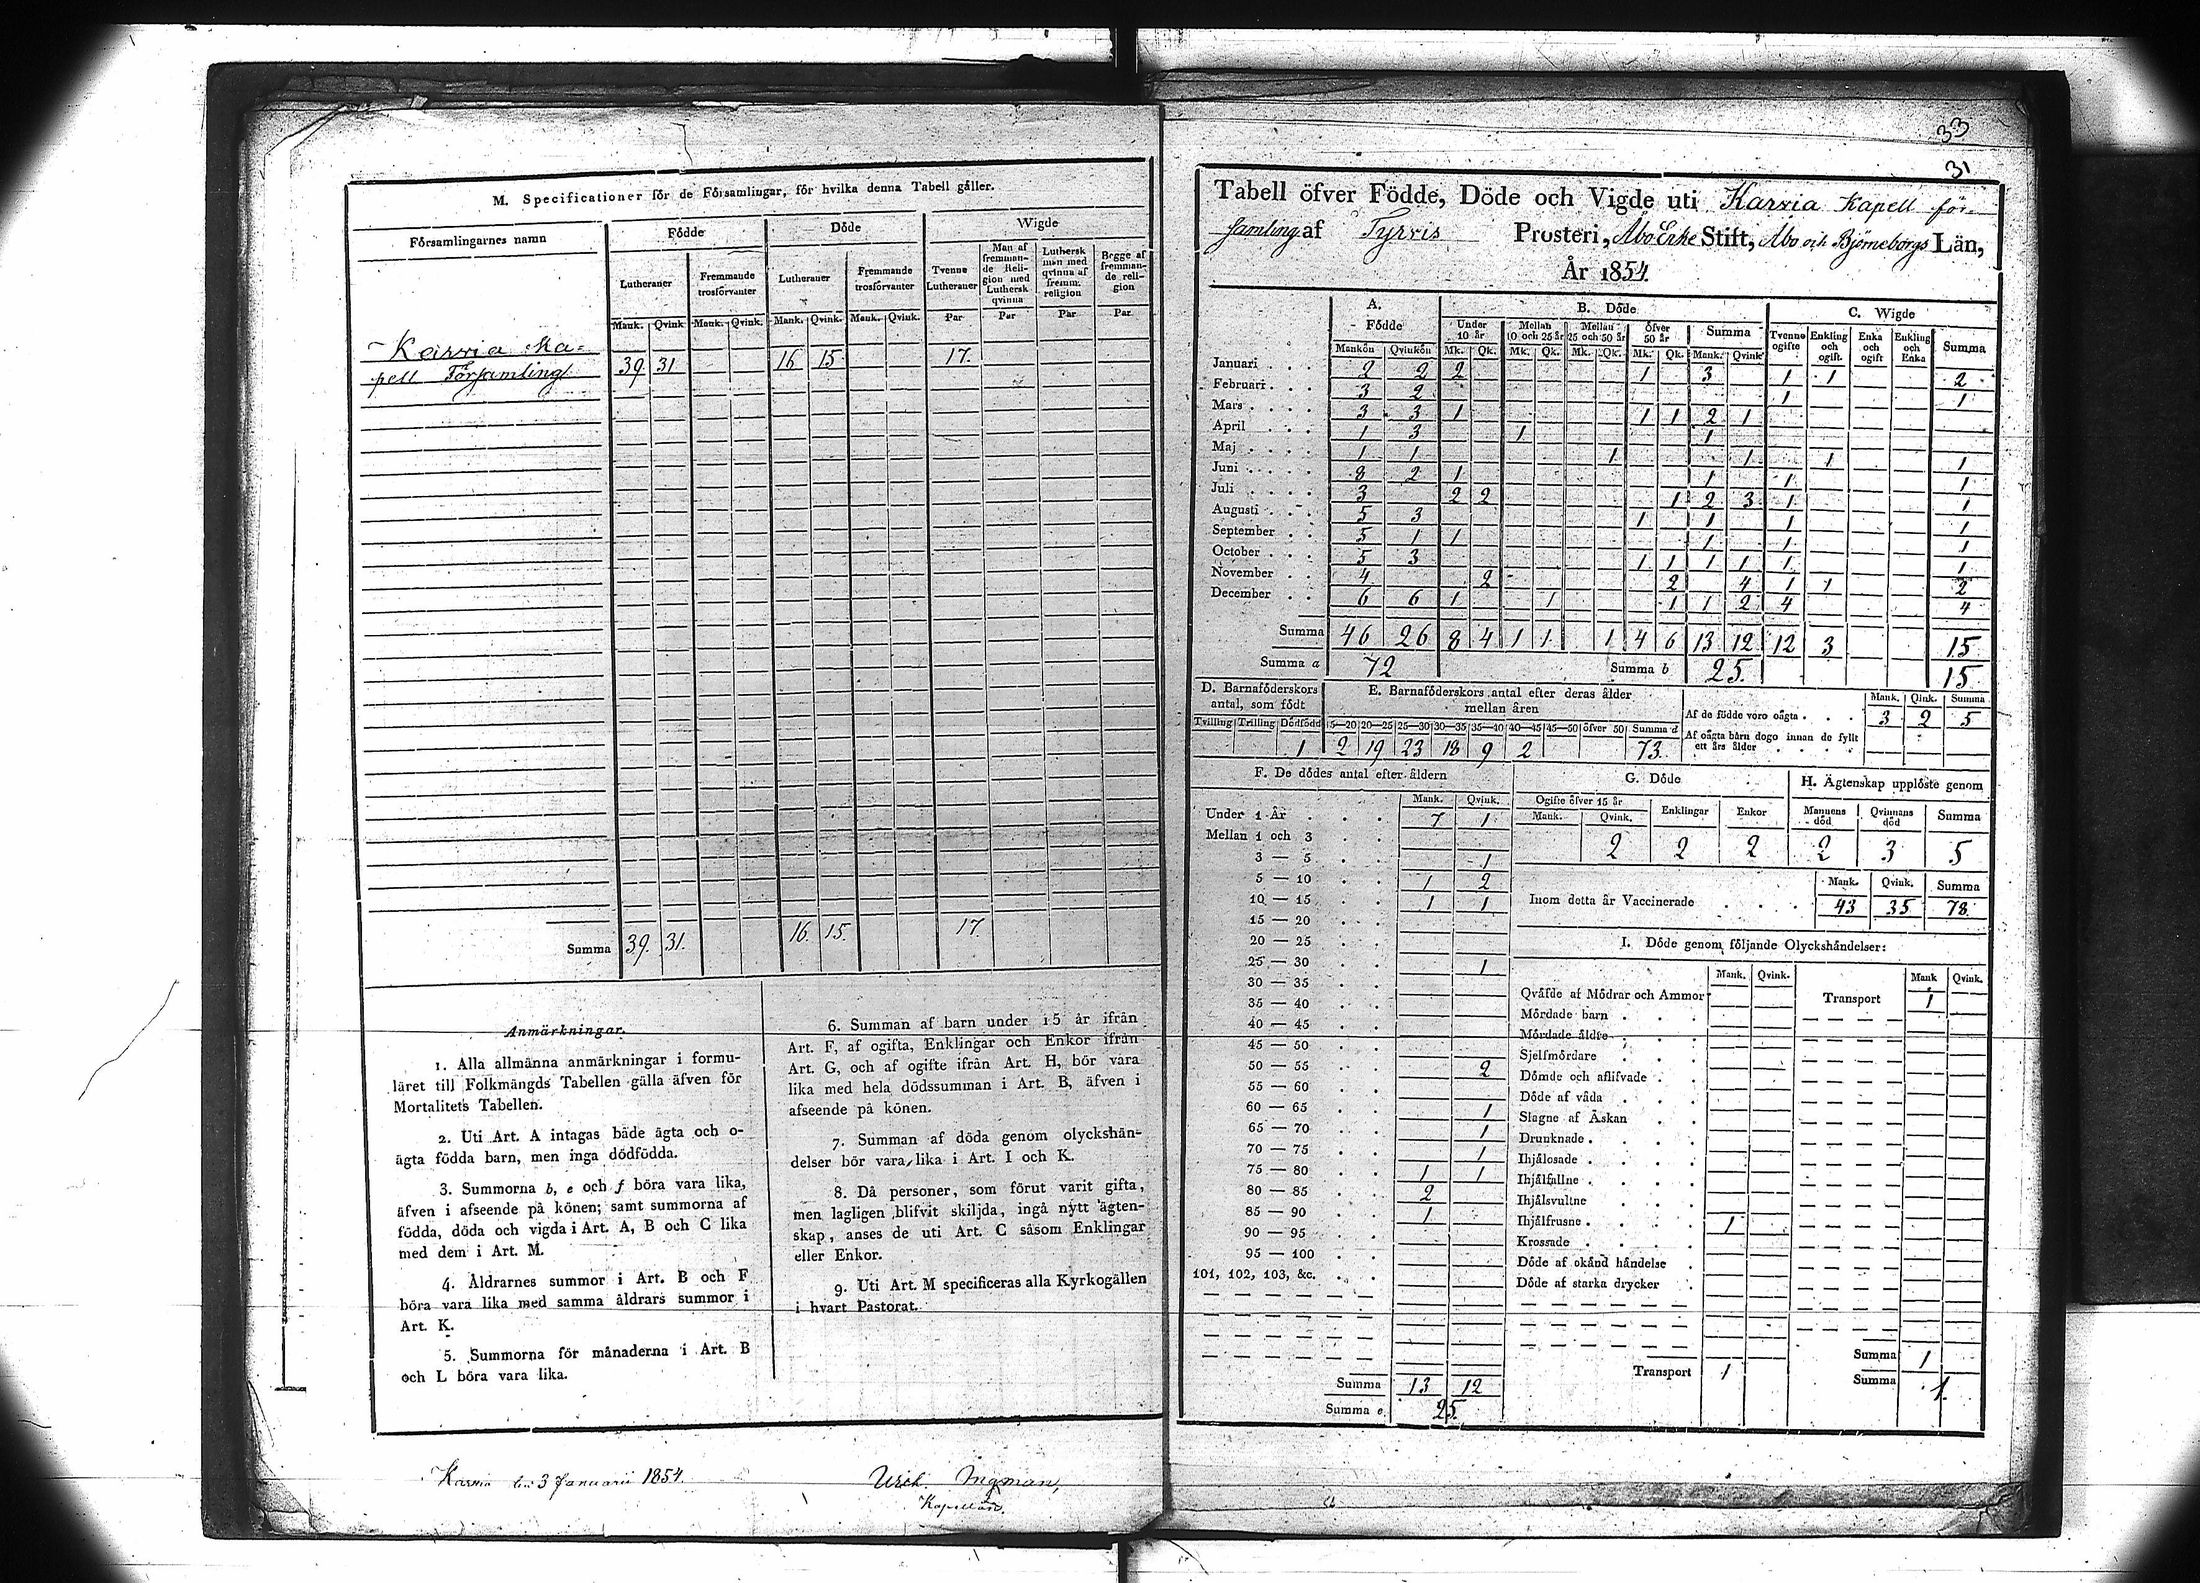 M. Specificationer för de Församlingar, för hvilka denna Tabell gäller.
Församlingarnes namn
Födde
Döde
Wigde
Lutheraner
Fremmande trosförvanter
Lutheraner
Fremmande trosförvanter
Tvenne Lutheraner
Man af fremmande Religion med Luthersk qvinna
Luthersk man med qvinna af fremm: religion
Begge af fremmande religion
Mank. Qvink. Mank. Qvink. Mank. Qvink. Mank. Qvink. Par Par Par Par
Karxia Ka-
pell Församling 39 31 16 15 17.
Summa 39. 31. 16. 15. 17.
Anmärkningar.
1. Alla allmänna anmärkningar i formu-
läret till Folkmängds Tabellen gälla äfven för
Mortalitets Tabellen.
2. Uti Art. A intagas både ägta och o-
ägta födda barn, men inga dödfödda.
3. Summorna b, e och f böra vara lika,
äfven i afseende på könen; samt summorna af
födda, döda och vigda i Art. A, B och C lika
med dem i Art. M.
4. Åldrarnes summor i Art. B och F
böra vara lika med samma åldrars summor i
Art. K.
5. Summorna för månaderna i Art. B
och L böra vara lika.
6. Summan af barn under 15 år ifrån
Art. F, af ogifta, Enklingar och Enkor ifrån
Art. G, och af ogifte ifrån Art. H, bör vara
lika med hela dödssumman i Art. B, äfven i
afseende på könen.
7. Summan af döda genom olyckshän-
delser bör vara lika i Art. I och K.
8. Då personer, som förut varit gifta,
men lagligen blifvit skiljda, ingå nytt ägten-
skap, anses de uti Art. C såsom Enklingar
eller Enkor.
9. Uti Art. M specificeras alla Kyrkogällen
i hvart Pastorat.
3 Januarii 1854.
Ingman,
Kapellan.
33
31
Tabell öfver Födde, Döde och Vigde uti Karxia Kapell för-
samling af Tyrvis Prosteri, Åbo Erke Stift, Åbo och Björneborgs Län,
År 1854.
A. Födde
B. Döde
C. Wigde
Under 10 år
Mellan 10 och 25 år
Mellan 25 och 50 år
Öfver 50 år
Summa
Tvenne ogifte
Enkling och ogift.
Enka och ogift
Enkling och Enka
Summa
Mankön Qvinkön Mk. Qk. Mk. Qk. Mk. Qk. Mk. Qk. Mank. Qvink.
Januari 2 2 2 1 3 1 1 2
Februari 3 2 1 1
Mars 3 3 1 1 1 2 1
April 1 3 1 1
Maj 1 1 1 1 1 1
Juni 8 2 1 1 1 1
Juli 3 2 2 1 2 3 1 1
Augusti 5 3 1 1 1 1
September 5 1 1 1 1 1
October 5 3 1 1 1 1 1 1
November 4 2 2 4 1 1 2
December 6 6 1 1 1 1 2 4 4
Summa 46 26 8 4 1 1 1 4 6 13 12 12 3 15
Summa a 72 Summa b 25. 15
D. Barnaföderskors antal, som födt
Tvilling Trilling Dödfödd
1
E. Barnaföderskors antal efter deras ålder mellan åren
15—20 20—25 25—30 30—35 35—40 40—45 45—50 öfver 50 Summa d
2 19 23 18 9 2 73.
Mank. Qink. Summa
Af de födde voro oägta . . . 3 2 5
Af oägta barn dogo innan de fyllt
ett års ålder
F. De dödes antal efter åldern
Mank. Qvink.
Under 1 År 7 1
Mellan 1 och 3
3 — 5 1
5 — 10 1 2
10 — 15 1 1
15 — 20
20 — 25
25 — 30 1
30 — 35
35 — 40
40 — 45
45 — 50
50 — 55 2
55 — 60
60 — 65 1
65 — 70 1
70 — 75 1
75 — 80 1 1
80 — 85 2
85 — 90 1
90 — 95
95 — 100
101, 102, 103, &c.
Summa 13 12
Summa e 25.
G. Döde
Ogifte öfver 15 år Enklingar Enkor
Mank. Qvink.
2 2 2
H. Ägtenskap upplöste genom
Mannens död Qvinnans död Summa
2 3 5
Mank. Qvink. Summa
Inom detta år Vaccinerade 43 35 78.
I. Döde genom följande Olyckshändelser:
Mank. Qvink. Mank Qvink.
Qväfde af Mödrar och Ammor Transport 1
Mördade barn
Mördade äldre
Sjelfmördare
Dömde och aflifvade
Döde af våda
Slagne af Åskan
Drunknade
Ihjälosade
Ihjälfallne
Ihjälsvultne
Ihjälfrusne 1
Krossade
Döde af okänd händelse
Döde af starka drycker
Summa 1
Transport 1 Summa 1.